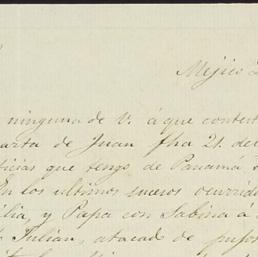 Mejico
ninguna de V. á que contest
arta de Juan fha 21. de
ticias que tengo de Panamá
En los ultimos sucesos ocurrido
ilia, y Papa con Sabina á
Julian, atacado de